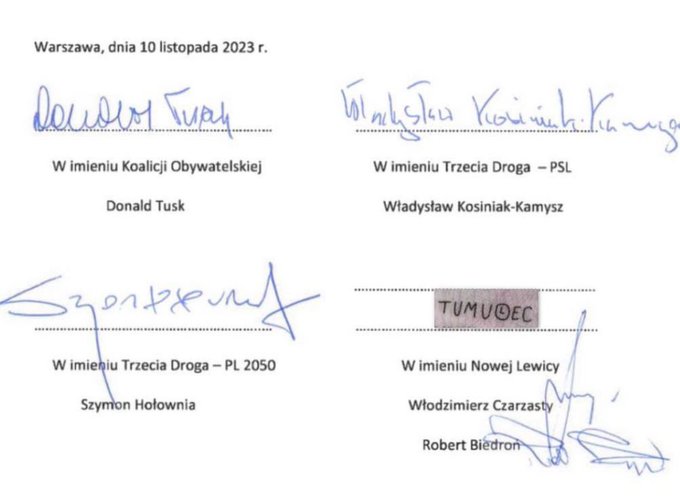 Warszawa, dnia 10 listopada 2023 r.
Donald Tusk
Władysław Kosiniak-Kamysz
W imieniu Koalicji Obywatelskiej
W imieniu Trzecia Droga – PSL
Donald Tusk
Władysław Kosiniak-Kamysz
TUMUⒸEC
W imieniu Trzecia Droga – PL 2050
W imieniu Nowej Lewicy
Szymon Hołownia
Włodzimierz Czarzasty
Robert Biedroń